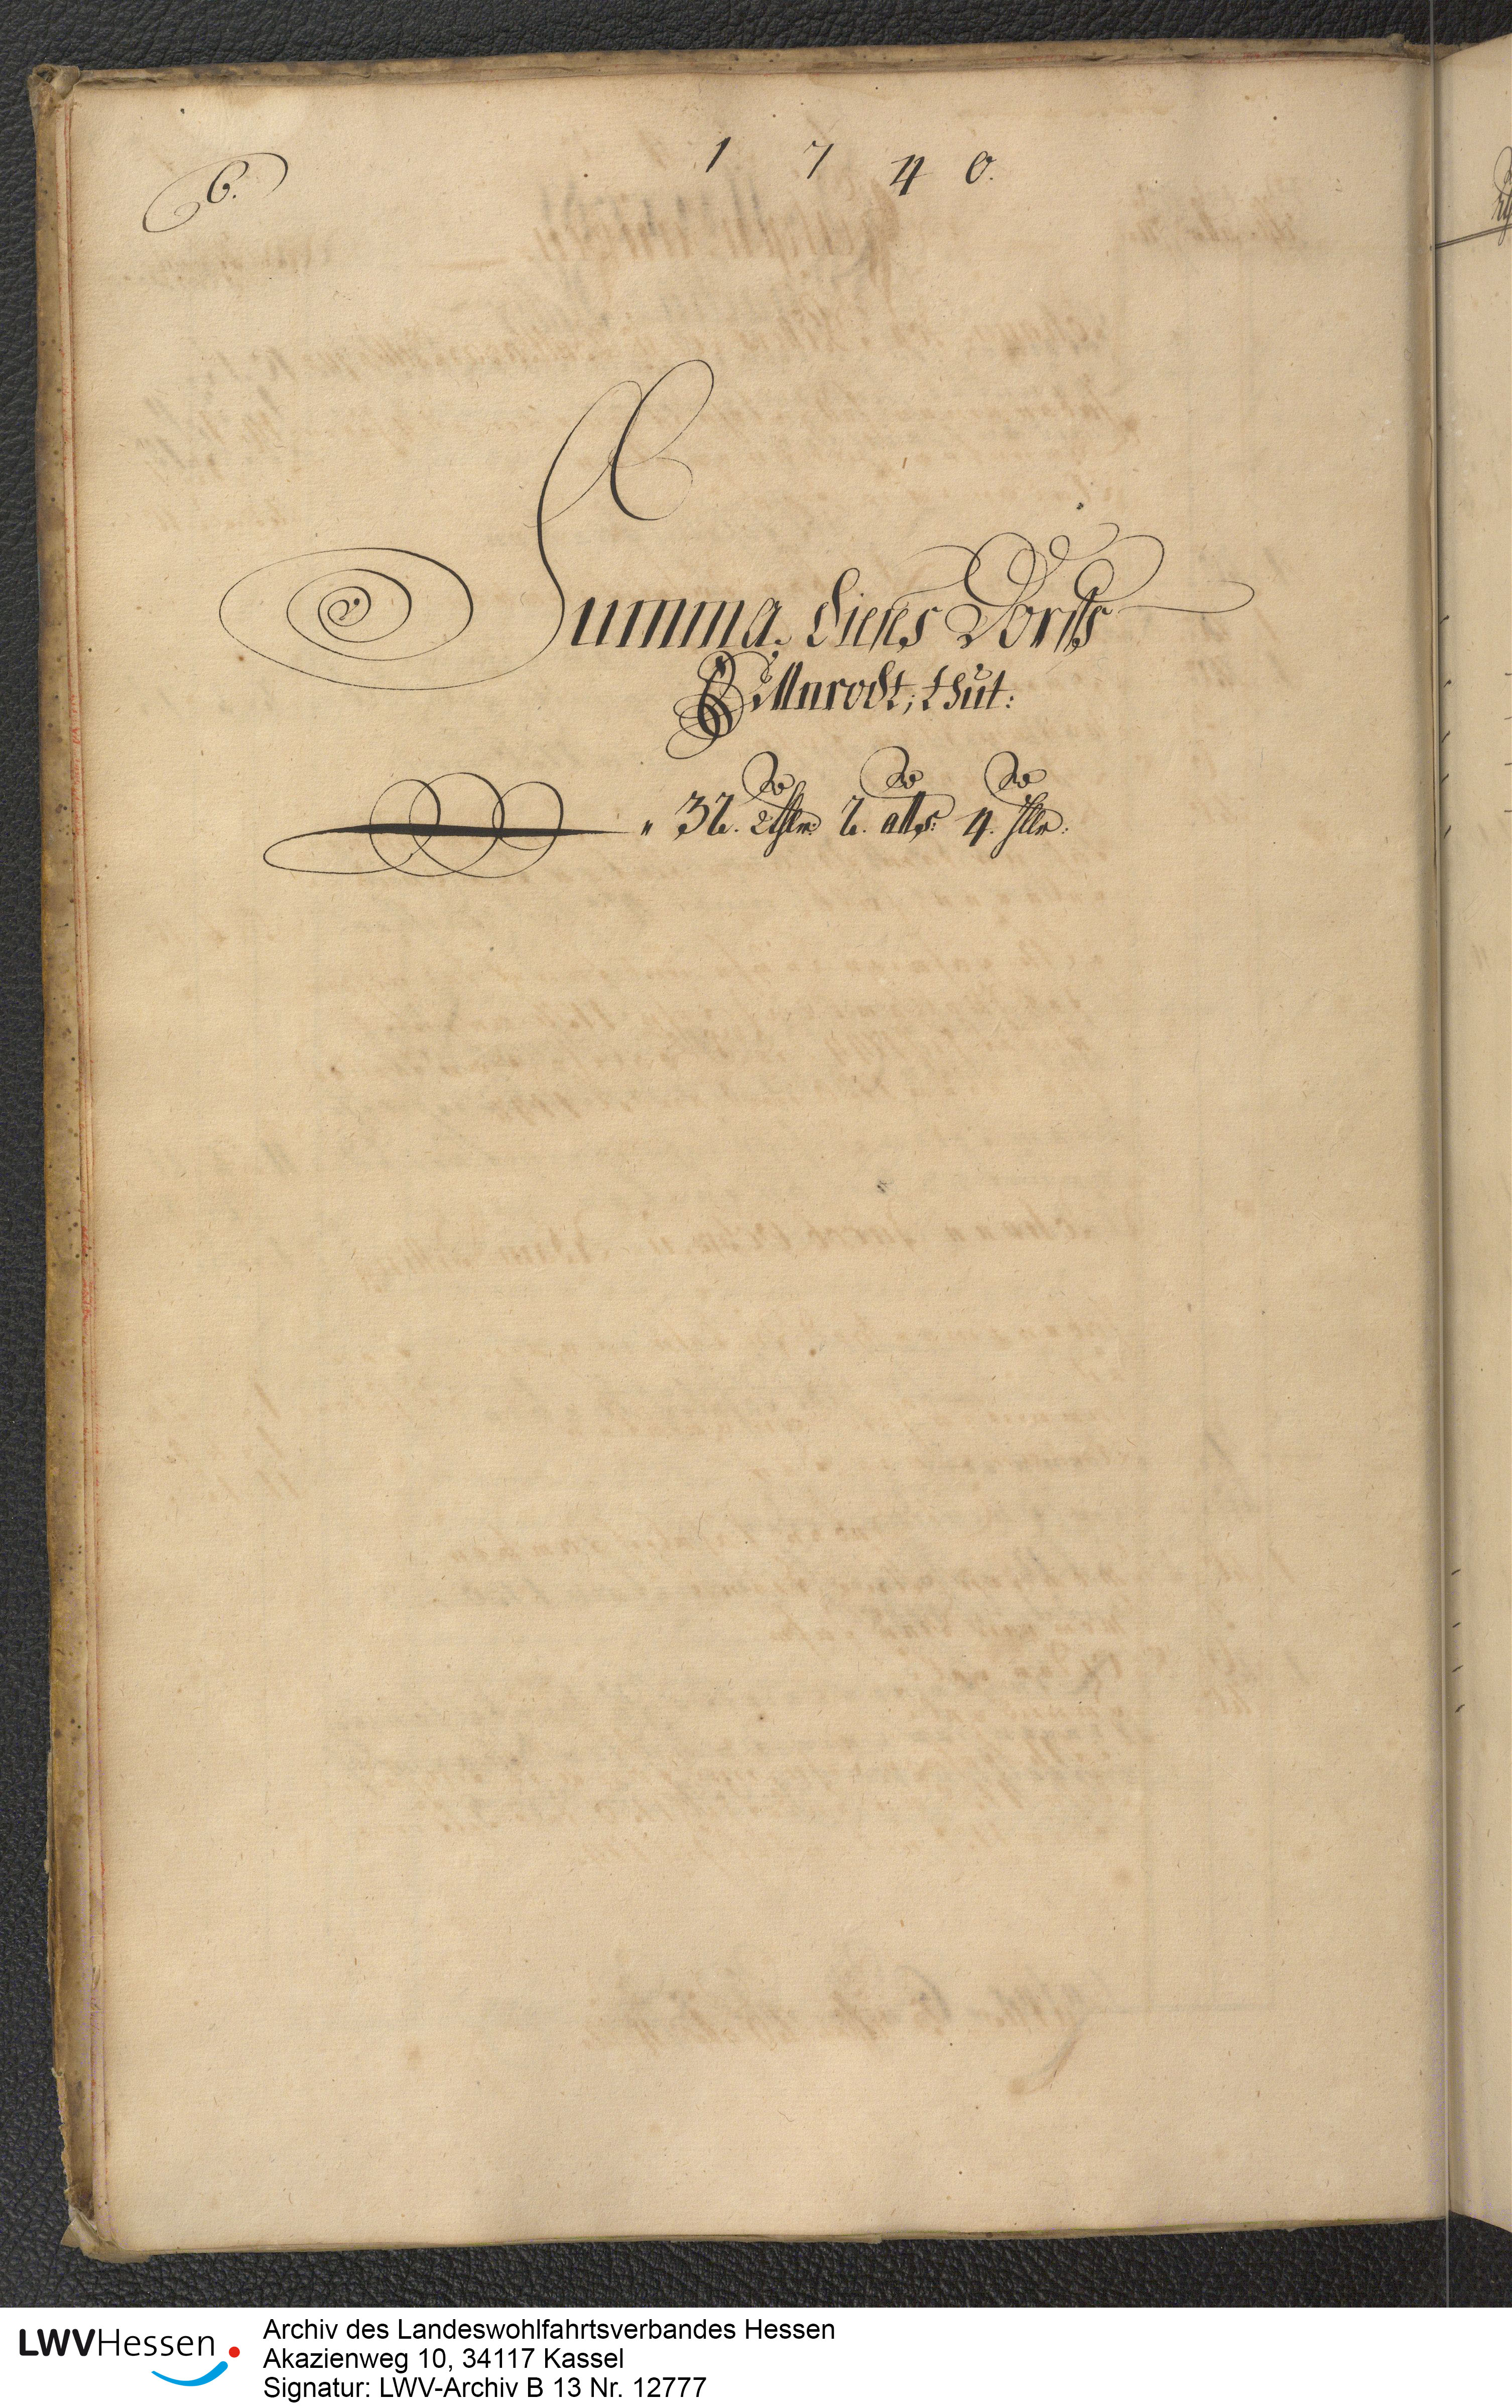 6.
1 7 4 0.
Summa. dieses Dorffs
Ellnrodt; thut:
" 32. rthlr: 2. alb: 4. hlr:
LWVHessen
Archiv des Landeswohlfahrtsverbandes Hessen
Akazienweg 10, 34117 Kassel
Signatur: LWV-Archiv B 13 Nr. 12777